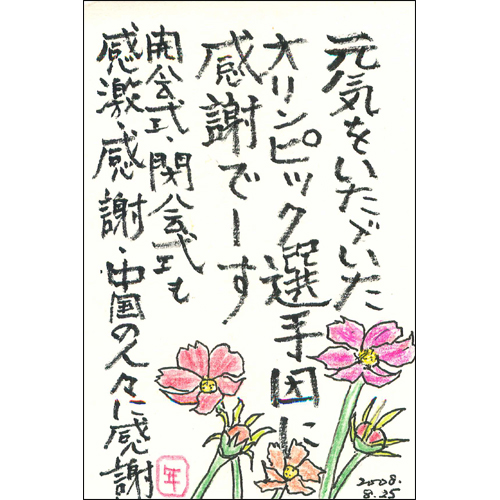 元気をいただいた
オリンピック選手団に
感謝でーす
開会式・閉会式も
感激・感謝・中国の人々に感謝
年
2008.
8.25